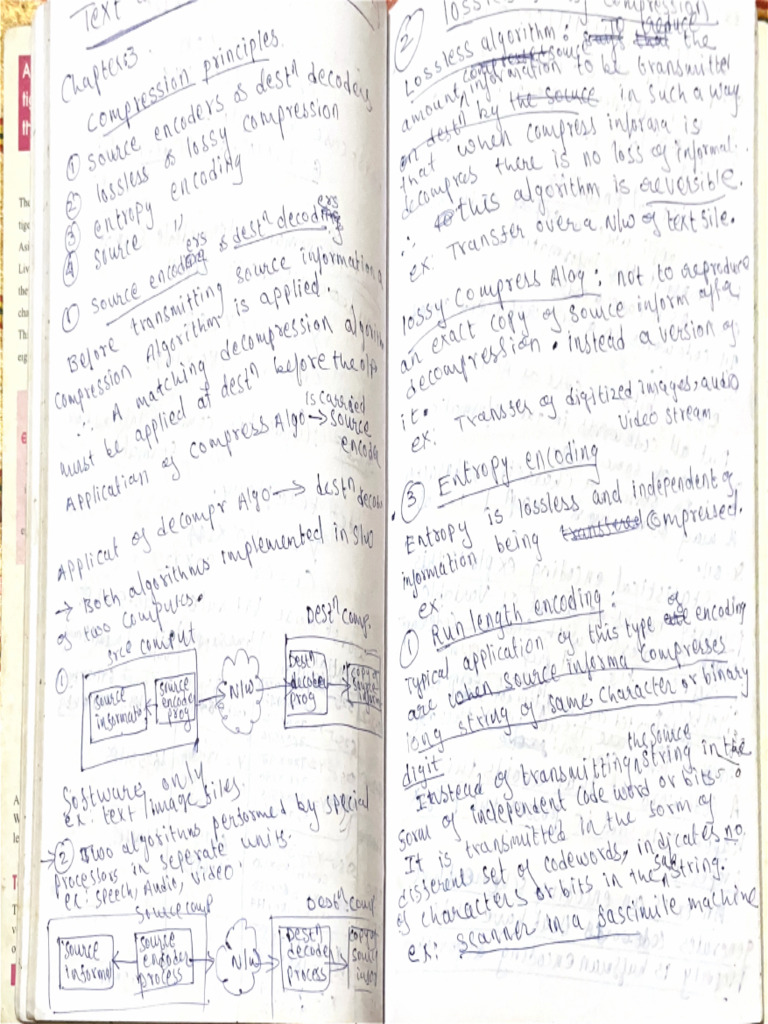 Text
Chapter:3
Compression principles.
① source encoders & destn decoders
② lossless & lossy compression
③ entropy encoding
④ source "
① source encoders & destn decoders
Before transmitting source information a
compression Algorithm is applied.
∴ A matching decompression algorithm
must be applied at destn before the o/p
Application of compress Algo → is carried source encoder
Applicat of decompr Algo → destn decoder
→ Both algorithms implemented in S/W
of two computes.
① srce comput
Destn comp.
source informat
source encoder prog
N/W
Destn decoder prog
copy of source inform
Software only
ex: text/image files.
→ ② Two algoritums performed by special
processors in seperate units.
ex: speech, Audio, video.
Source comp
Destn comp
source informat
source encoder process
N/W
Destn decoder process
copy of source inform
② lossless & lossy compression
Lossless algorithm: To reduce the
amount source information to be transmitted
on destn by the source in such a way
that when compress informa is
decompres there is no loss of informat.
∴ this algorithm is reversible.
ex: Transfer over a N/W of text file.
lossy Compress Alog: not to reproduce
an exact copy of source inform after
decompression. instead a version of
it.
ex: Transfer of digitized images, audio
video stream
③ Entropy encoding
Entropy is lossless and independent of
information being transferred compressed.
ex:
① Run length encoding:
Typical application of this type of encoding
are when source informa compresses
long string of same character or binary
digit
Instead of transmitting the source string in the
form of independent code word or bits
It is transmitted in the form of
different set of codewords, indicates no
of characters or bits in the string.
ex: scanner in a fascimile machine